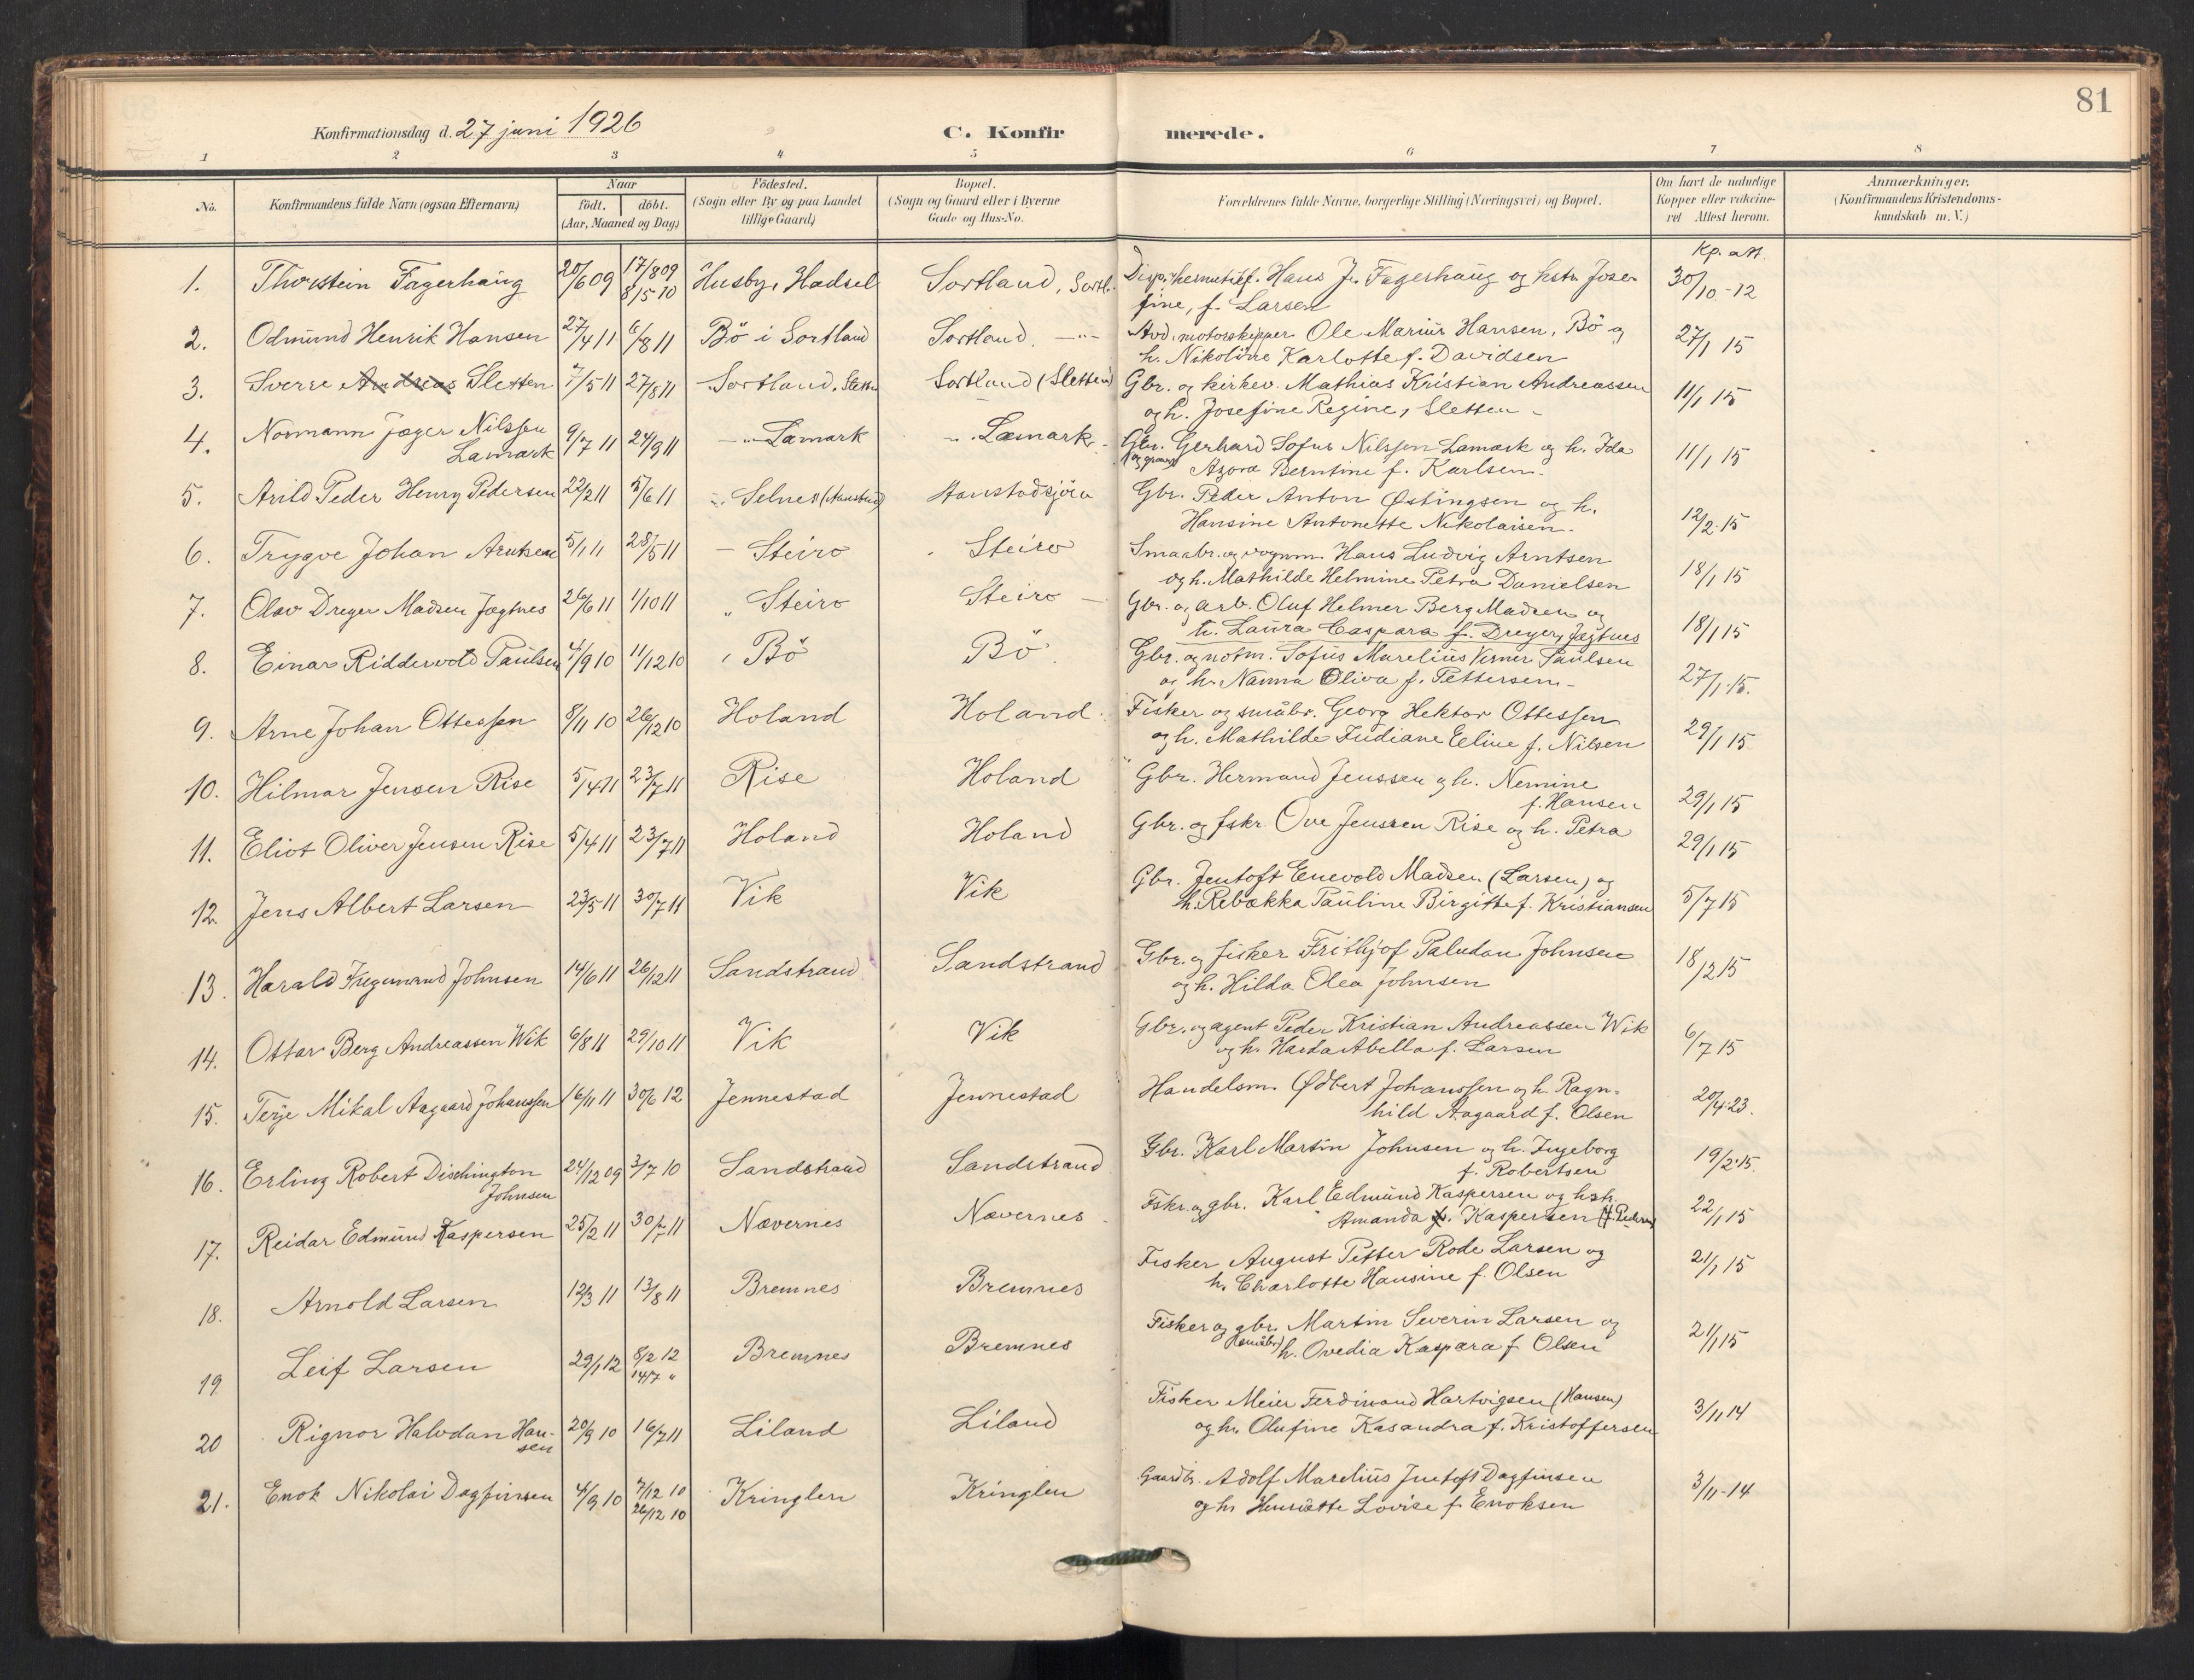 81
Konfirmationsdag d. 27 juni 1926
C. Konfirmerede.
1 2 3 4 5 6 7 8
No.
Konfirmandens fulde Navn (ogsaa Efternavn)
Naar
födt. döbt.
(Aar, Maaned og Dag)
Födested.
(Sogn eller By og paa Landet
tillige Gaard)
Bopæl.
(Sogn og Gaard eller i Byerne
Gade og Hus-No.
Forældrenes fulde Navne, borgerlige Stilling (Næringsvei) og Bopæl.
Om havt de naturlige
Kopper eller vakcine-
ret Attest herom.
Anmærkninger.
(Konfirmandens Kristendoms-
kundskab m. V.)
Kp. att.
1. Thorstein Fagerhaug 20/6 09 17/8 09 Husby, Hadsel Sortland, Sortl. Hans J. Fagerhaug og hstr. Jose-
8/5 10 fine, f. Larsen 30/10-12
2. Odmund Henrik Hansen 27/4 11 6/8 11 Bö i Sortland Sortland. -"- motorskipper Ole Marius Hansen, Bö og
h. Nikoline Karlotte f. Davidsen 27/1 15
3. Sverre Andreas Sletten 7/5 11 27/8 11 Sortland, Sletten Sortland (Sletten) Gbr. og kirkev. Mathias Kristian Andreassen
og h. Josefine Regine, Sletten - 11/1 15
4. Normann Jæger Nilssen 9/7 11 24/9 11 -"- Lamark -"- Læmark Gbr. Gerhard Sofus Nilssen Lamark og h. Ida
Lamark Azora Berntine f. Karlsen. 11/1 15
5. Arild Peder Henry Pedersen 22/2 11 5/6 11 -"- Selnes Aanstadsjöen Gbr. Peder Anton Østingsen og h.
Hansine Antonette Nikolaisen. 12/2 15
6. Trygve Johan Arntsen 5/1 11 28/5 11 - Steiro Steiro Smaabr. og vognm. Hans Ludvig Arntsen
og h. Mathilde Helmine Petra Danielsen 18/1 15
7. Olav Dreyer Madsen Jægtnes 26/6 11 1/10 11 " Steiro Steiro - Gbr. og arb. Oluf Helmer Berg Madsen og
h. Laura Caspara f. Dreyer, Jægtnes 18/1 15
8. Einar Ridderwold Paulsen 4/9 10 11/12 10 Bö Bö Gbr. og notm. Sofus Marelius Verner Paulsen
og h. Nanna Oliva f. Pettersen - 27/1 15.
9. Arne Johan Ottessen 8/11 10 26/12 10 Holand Holand. Fisker og småbr. Georg Hektor Ottessen
og h. Mathilde Indiane Eeline f. Nilsen 29/1 15
10. Hilmar Jensen Rise 5/4 11 23/7 11 Rise Holand Gbr. Hermand Jenssen og h. Nemine
f. Hansen 29/1 15
11. Eliot Oliver Jensen Rise 5/4 11 23/7 11 Holand Holand Gbr. og fskr. Ove Jenssen Rise og h. Petra 29/1 15
12. Jens Albert Larsen 23/5 11 30/7 11 Vik Vik Gbr. Jentoft Enevold Madsen (Larsen) og
h. Rebækka Pauline Birgitte f. Kristiansen 5/7 15
13. Harald Johnsen 14/6 11 26/12 11 Sandstrand Sandstrand Gbr. og fisker Frithjof Paludan Johnsen
og h. Hilda Olea Johnsen 18/2 15
14. Ottar Berg Andreassen Wik 6/8 11 29/10 11 Vik Vik Gbr. og agent Peder Kristian Andreassen Wik
og h. Abella f. Larsen 6/7 15
15. Terje Mikal Aagaard Johanssen 16/11 11 30/6 12 Jennestad Jennestad Handelsm. Ødbert Johanssen og h. Ragn-
hild Aagaard f. Olsen 20/4 23.
16. Erling Robert Dischington 24/12 09 3/7 10 Sandstrand Sandstrand Gbr. Karl Martin Johnsen og h. Ingeborg
Johnsen f. Robertsen 19/2 15.
17. Reidar Edmund Kaspersen 25/2 11 30/7 11 Nævernes Nævernes Fskr. og gbr. Karl Edmund Kaspersen og hstr.
Amanda f. Kaspersen (f. Pedersen) 22/1 15
18. Arnold Larsen 12/3 11 13/8 11 Bremnes Bremnes Fisker August Petter Rode Larsen og
h. Charlotte Hansine f. Olsen 21/1 15
19 Leif Larsen 29/1 12 8/2 12 Bremnes Bremnes Fisker og gbr. Martin Severin Larsen og
14/7 " (småbr) h. Ovedia Kaspara f Olsen 21/1 15
20 Rignor Halvdan Han- 20/9 10 16/7 11 Liland Liland Fisker Meier Ferdinand Hartvigsen (Hansen)
sen og h. Olufine Kasandra f. Kristoffersen 3/11 14
21. Enok Nikolai Dagfinsen 4/9 10 7/12 10 Kringlen Kringlen Gaardbr. Adolf Marelius Jentoft Dagfinsen
26/12 10 og h. Henriette Lovise f. Enoksen 3/11-14